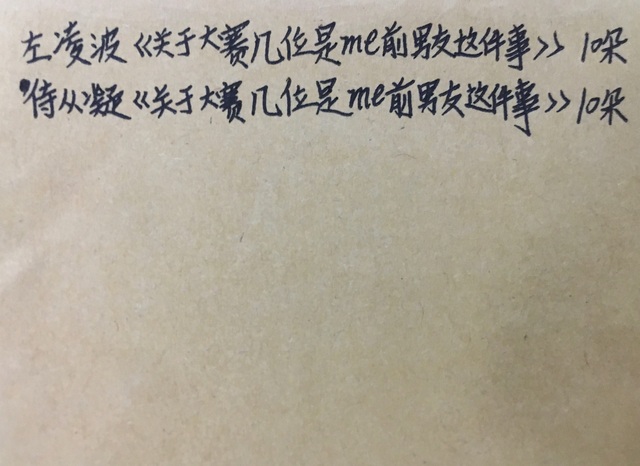 左凌波《关于大赛几位是me前男友这件事》10朵
侍从凝《关于大赛几位是me前男友这件事》10朵